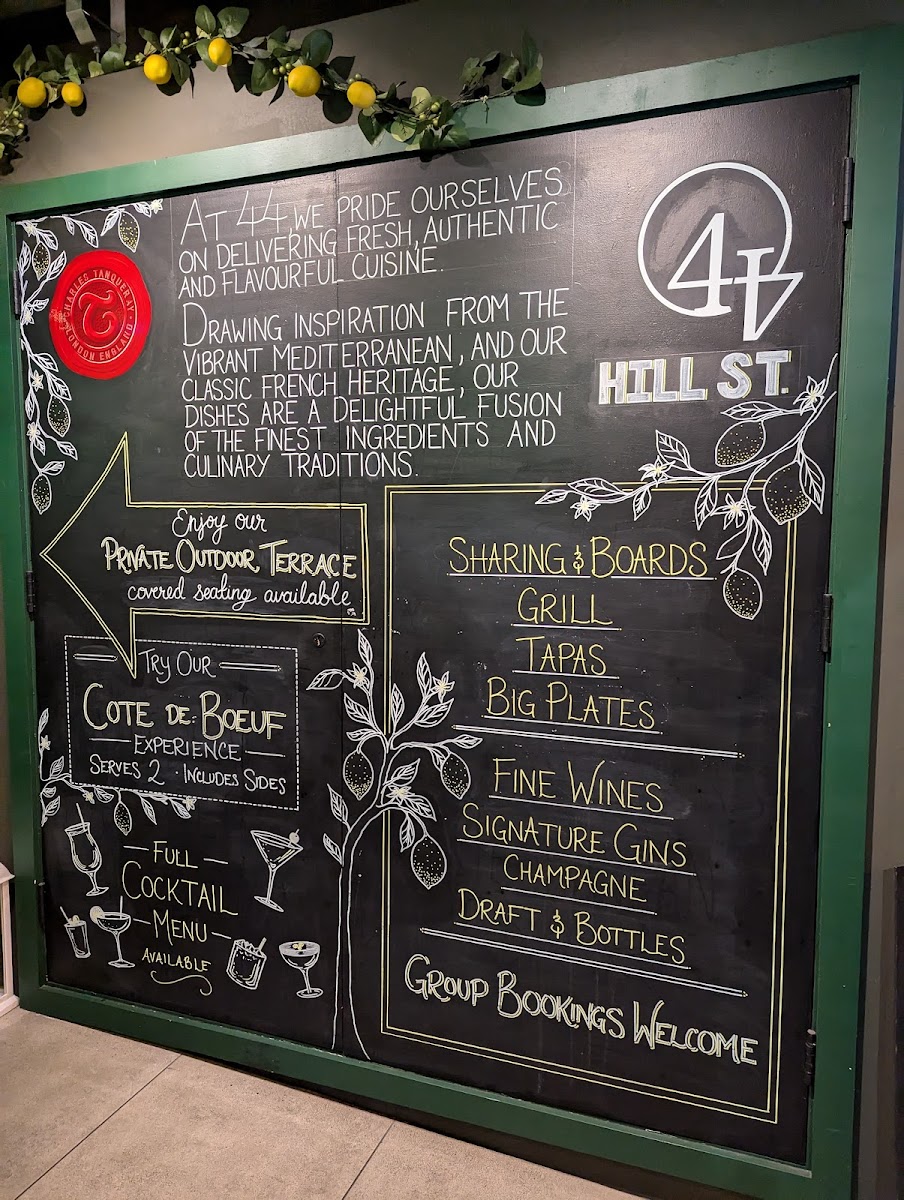 At 44, we pride ourselves
on delivering fresh, authentic
and flavourful cuisine.
Drawing inspiration from the
vibrant Mediterranean, and our
classic French heritage, our
dishes are a delightful fusion
of the finest ingredients and
culinary traditions.
44
HILL ST.
CHARLES TANQUERAY
&
LONDON ENGLAND
Enjoy our
Private Outdoor Terrace
covered seating available
Try Our
Cote de Boeuf
Experience
Serves 2 · Includes Sides
Full
Cocktail
Menu
Available
Sharing & Boards
Grill
Tapas
Big Plates
Fine Wines
Signature Gins
Champagne
Draft & Bottles
Group Bookings Welcome